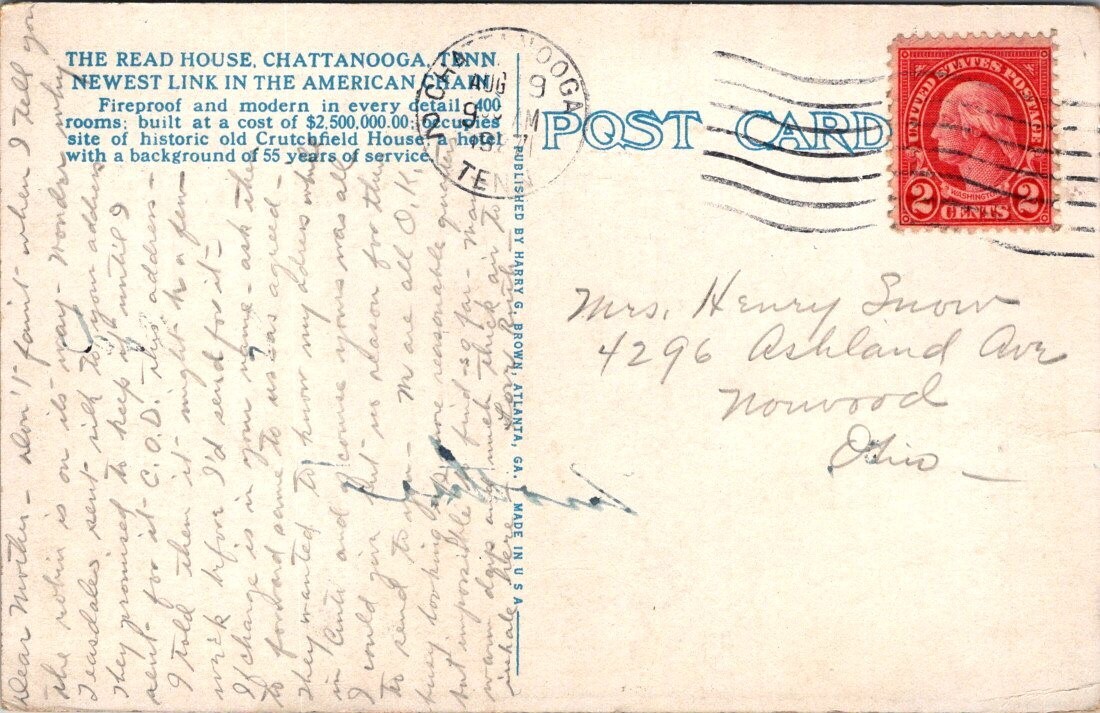 THE READ HOUSE, CHATTANOOGA, TENN.
NEWEST LINK IN THE AMERICAN CHAIN
Fireproof and modern in every detail. 400
rooms; built at a cost of $2,500,000.00; occupies
site of historic old Crutchfield House, a hotel
with a background of 55 years of service.
CHATTANOOGA
AUG 9
TENN
POST CARD
UNITED STATES POSTAGE
WASHINGTON
2 CENTS 2
PUBLISHED BY HARRY G. BROWN, ATLANTA, GA. MADE IN U S A
Mrs. Henry Snow
4296 Ashland Ave
Norwood
Ohio
Dear Mother - don't faint - when I tell you
the robin is on its way - Wonder why
Teasdales sent silk to your address
They promised to keep it until I
sent for it C.O.D. this address -
I told them it might be a few
week before I'd send for it -
If change is in your name - ask them
to forward same to us as agreed -
They wanted to know my address while
in Cinti and of course yours was all
I could give but no reason for this
to send to you - M are all O.K.
busy looking for more reasonable
but impossible to find so far - Many
warm days and much thick air to
inhale here.